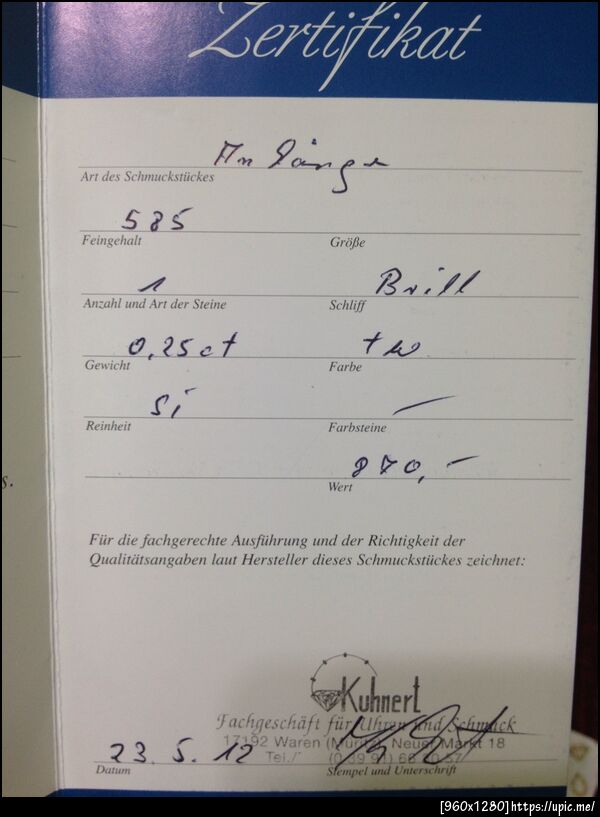 Zertifikat
Anhänger
Art des Schmuckstückes
585
Feingehalt Größe
1 Brill
Anzahl und Art der Steine Schliff
0,25 ct tw
Gewicht Farbe
Si —
Reinheit Farbsteine
870,—
Wert
s.
Für die fachgerechte Ausführung und der Richtigkeit der
Qualitätsangaben laut Hersteller dieses Schmuckstückes zeichnet:
Kuhnert
Fachgeschäft für Uhren und Schmuck
17192 Waren (Müritz) Neuer Markt 18
Tel./ (0 39 91) 66
23.5.12
Datum Stempel und Unterschrift
[960x1280]https://upic.me/